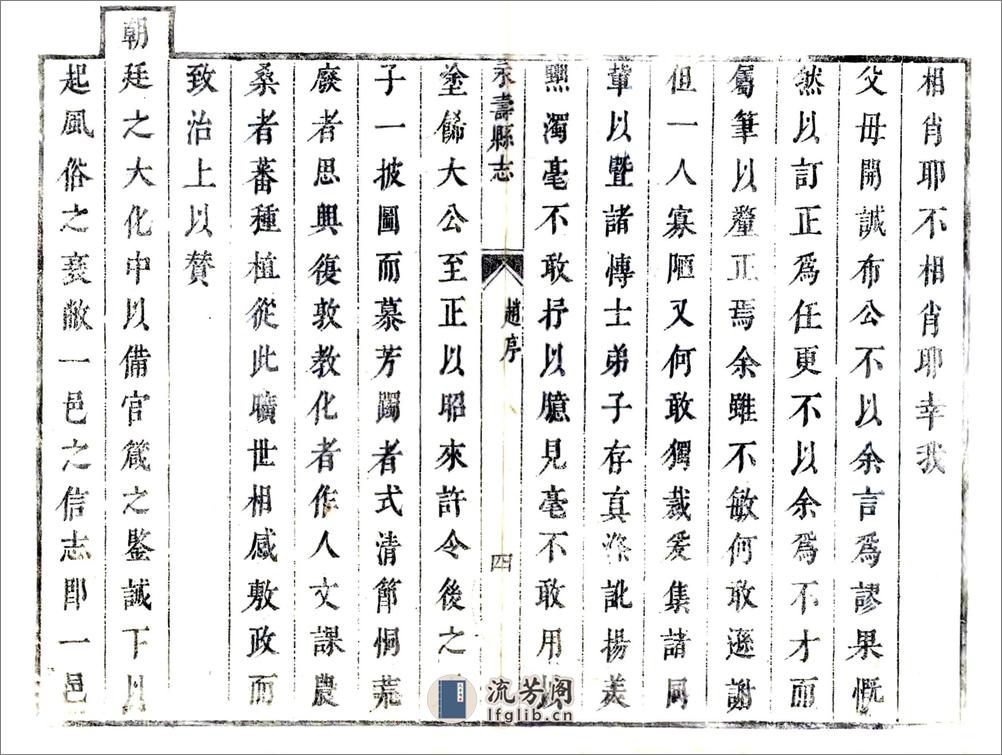 相肖耶不相肖耶幸我
父母開誠布公不以余言爲謬果慨
然以訂正爲任更不以余爲不才而
屬筆以釐正焉余雖不敏何敢遜謝
但一人寡陋又何敢獨裁爰集諸同
輩以曁諸博士弟子存真滌訛揚美
黑濁毫不敢抒以臆見毫不敢用以
永壽縣志
趙序
四
塗餙大公至正以昭來許令後之
子一披圖而慕芳躅者式清節恫荒
廢者思興復敦教化者作人文課農
桑者蕃種植從此曠世相感敷政而
致治上以贊
朝廷之大化中以備官箴之鑒誡下以
起風俗之衰敝一邑之信志郎一邑
流芳阁
lfglib.cn